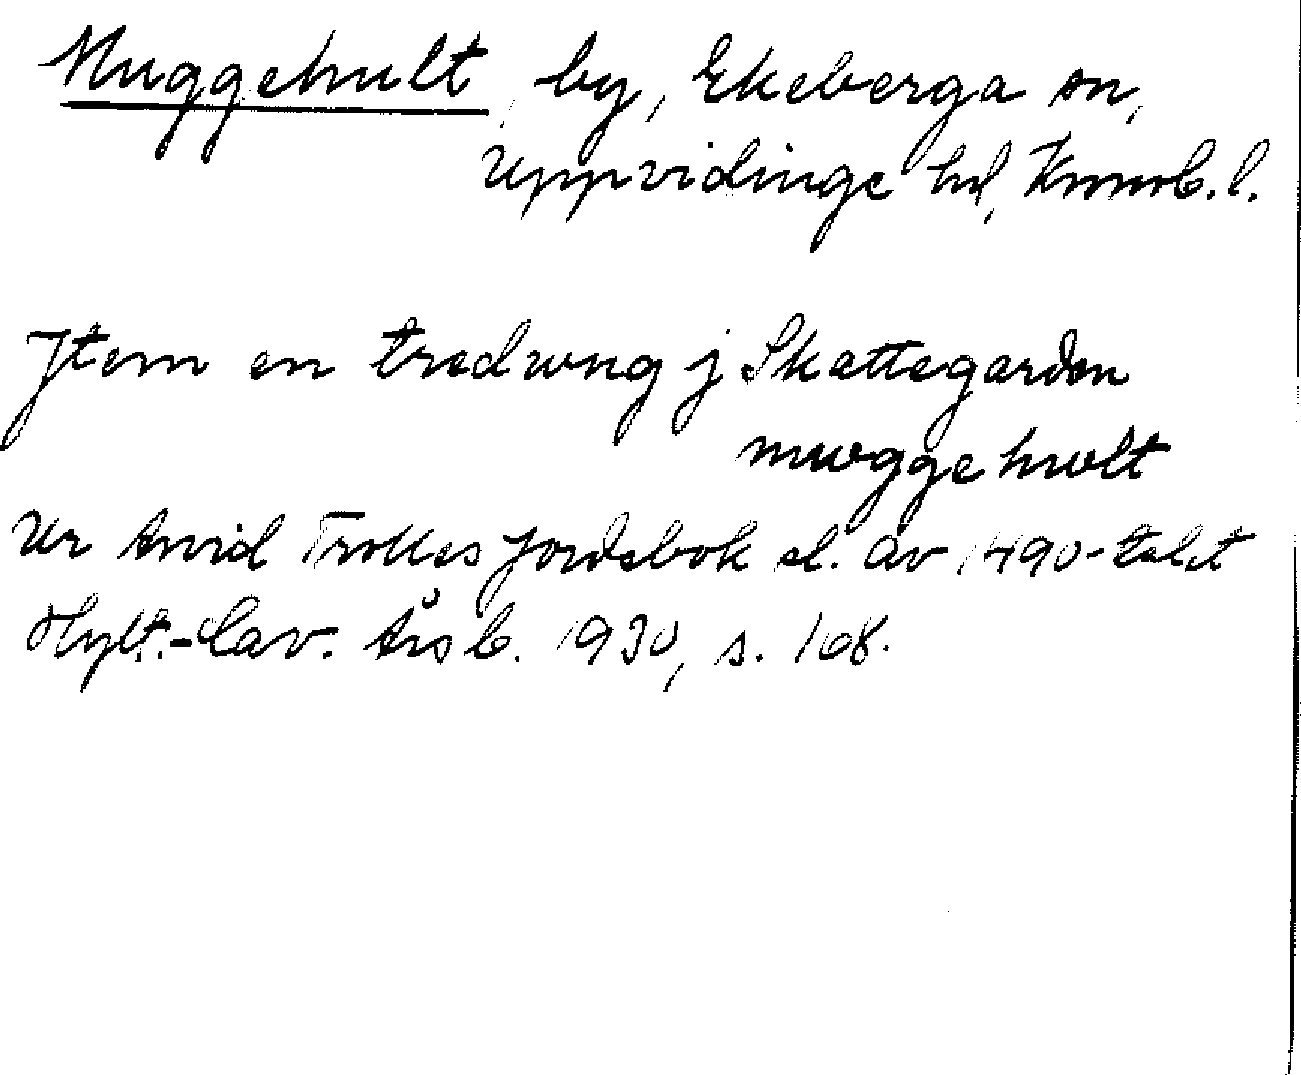 Muggehult, by, Ekeberga sn,
Uppvidinge hd, Kronob. l.
Jtem en tredwng j Skattegarden
mwggehwlt
Ur Arvid Trolles jordebok sl. av 1490-talet
Hylt.-Cav. Årsb. 1930, s. 168.